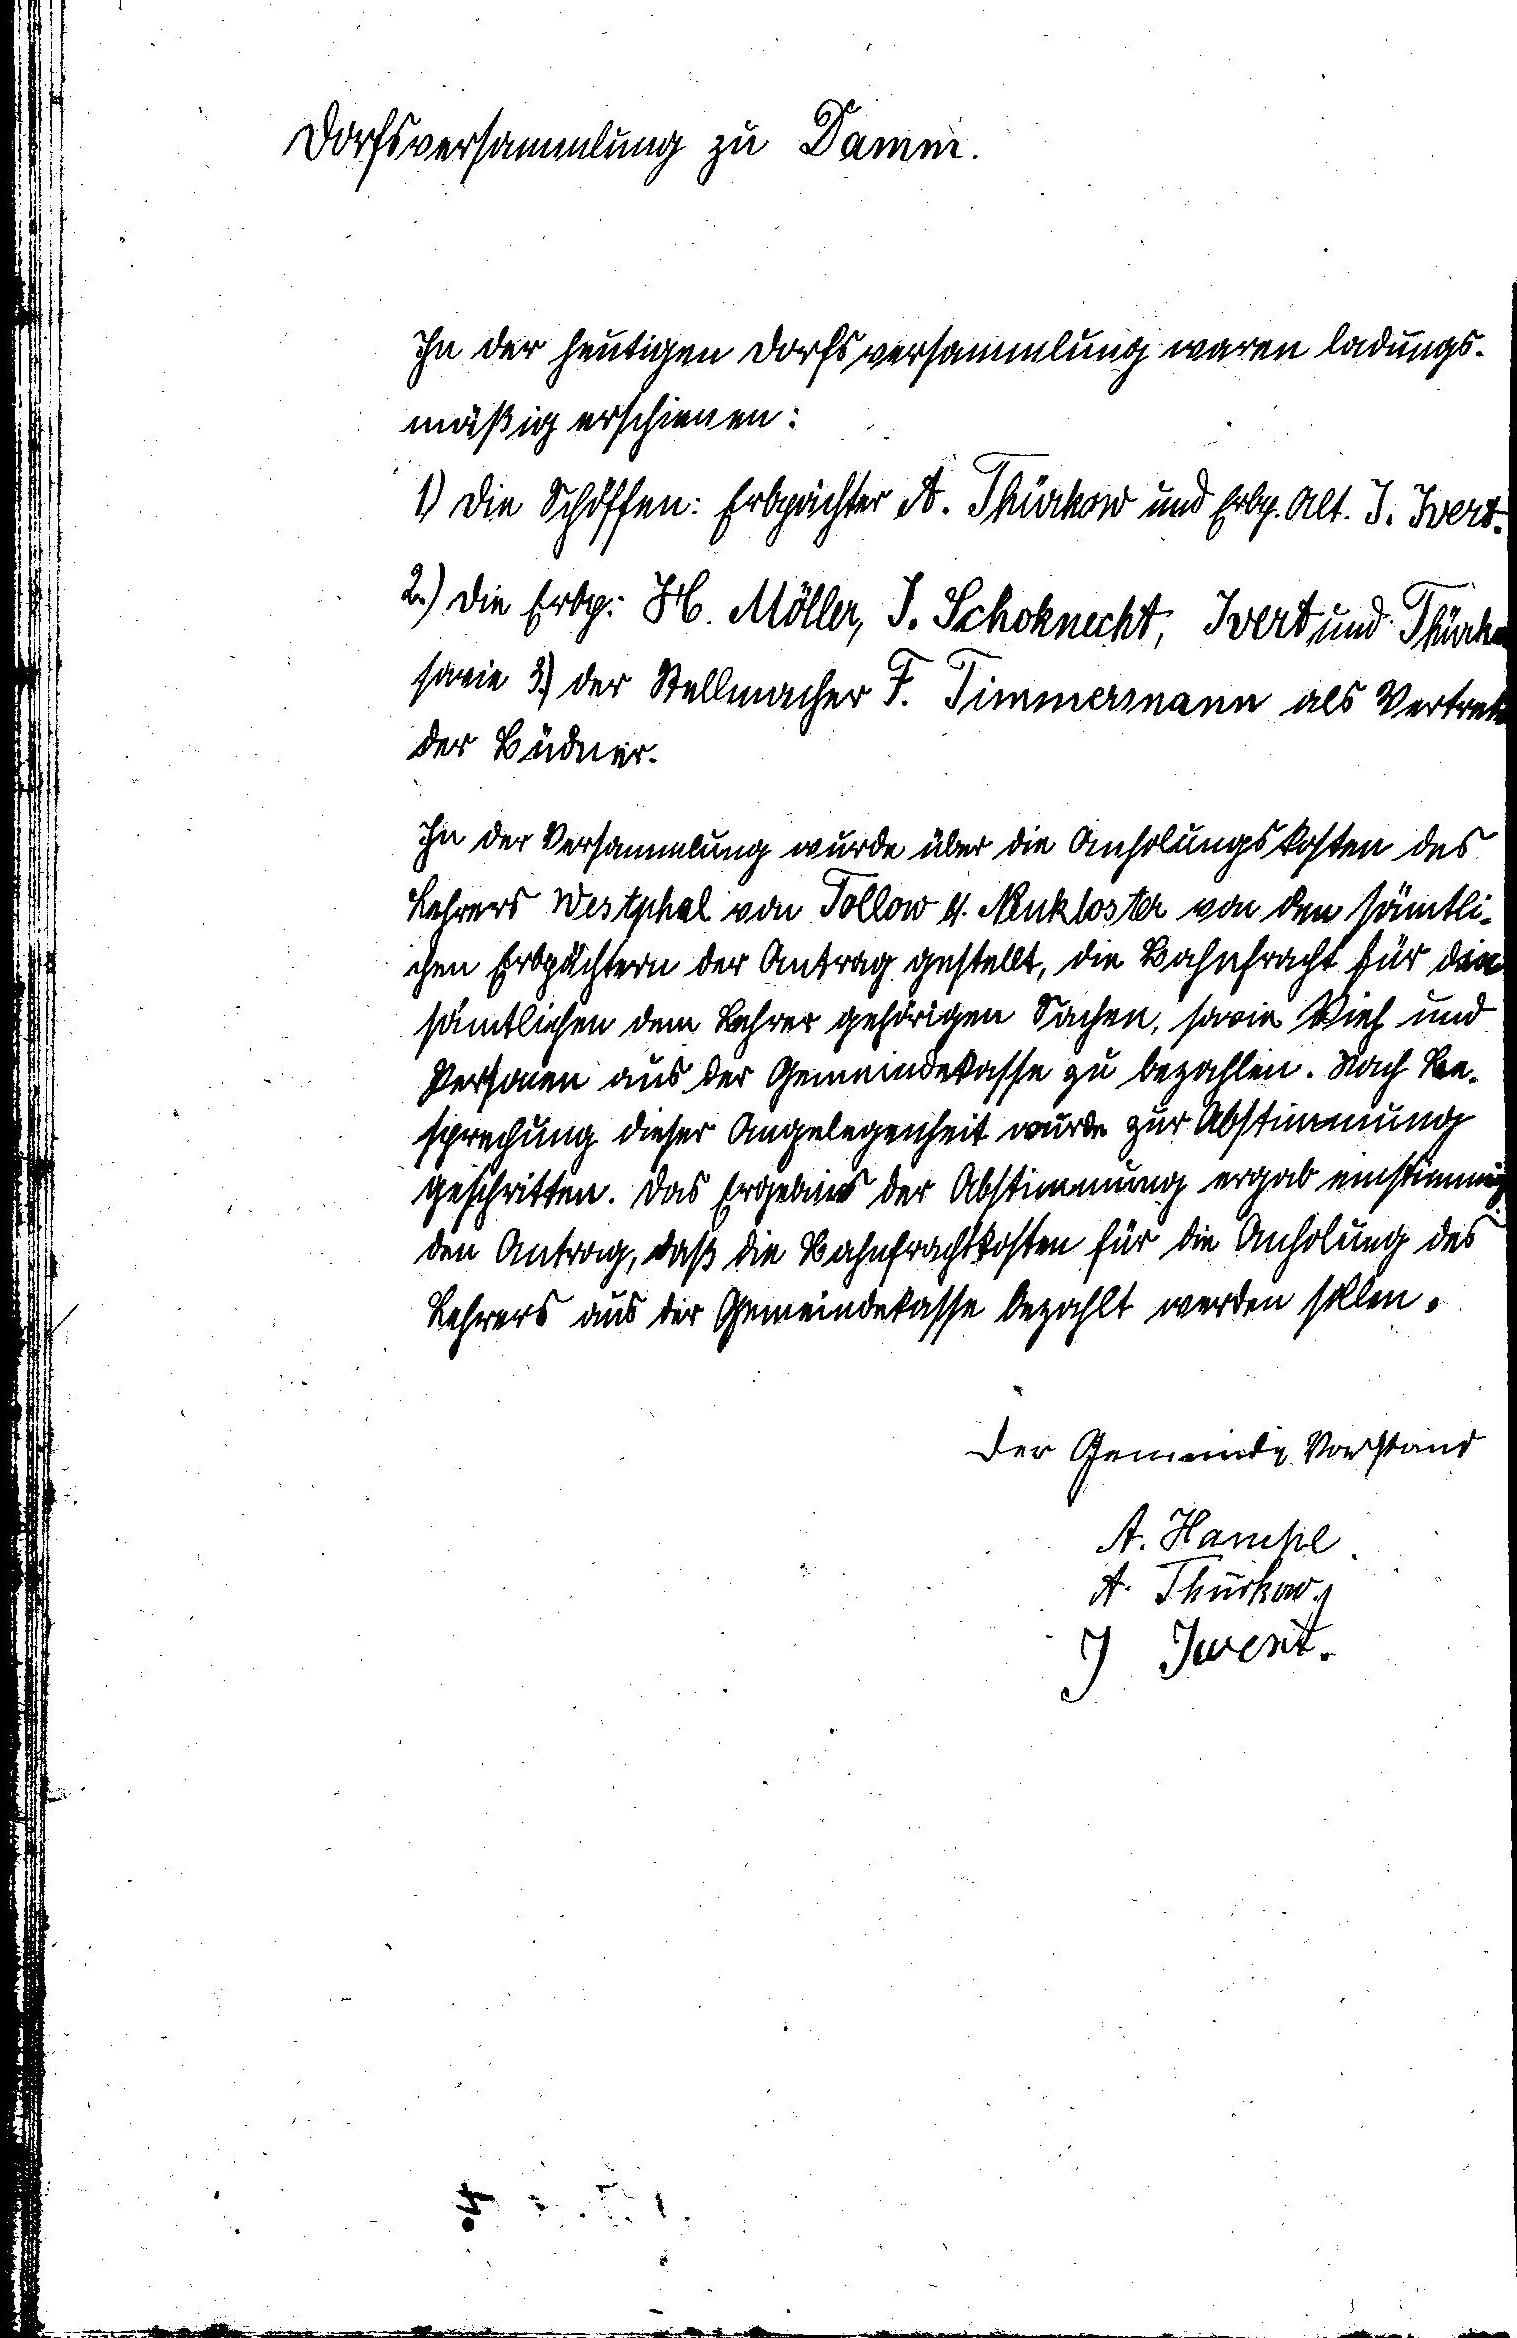 Dorfsversammlung zu Damm.
In der heutigen Dorfsversammlung waren ladungs-
mäßig erschienen:
1) Die Schöffen: Erbpächter A. Thürkow und Erbp. Alt. J. Ivert.
2.) Die Erbp.: H. Möller, J. Schoknecht, Ivert und Thürko
sowie 3.) der Stellmacher F. Timmermann als Vertrete
der Büdner.
In der Versammlung wurde über die Anholungskosten des
Lehrers Westphal von Tollow b. Neukloster von den sämtli-
chen Erbpächtern der Antrag gestellt, die Bahnfracht für die
sämtlichen dem Lehrer gehörigen Sachen, sowie Vieh und
Personen aus der Gemeindekasse zu bezahlen. Nach Be-
sprechung dieser Angelegenheit wurde zur Abstimmung
geschritten. Das Ergebnis der Abstimmung ergab einstimmig
den Antrag, daß die Bahnfrachtkosten für die Anholung des
Lehrers aus der Gemeindekasse bezahlt werden sollen.
Der Gemeinde Vorstand
A. Hampe
A. Thürkow
J Ivert.